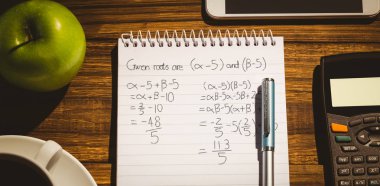 Given roots are (α-5) and (β-5)
α-5+β-5
=α+β-10
=2/5-10
=-48/5
(α-5)(β-5)
=αβ-5α-5β+2
=αβ-5(α+β)
=-2/5-5(2/5)
=113/5